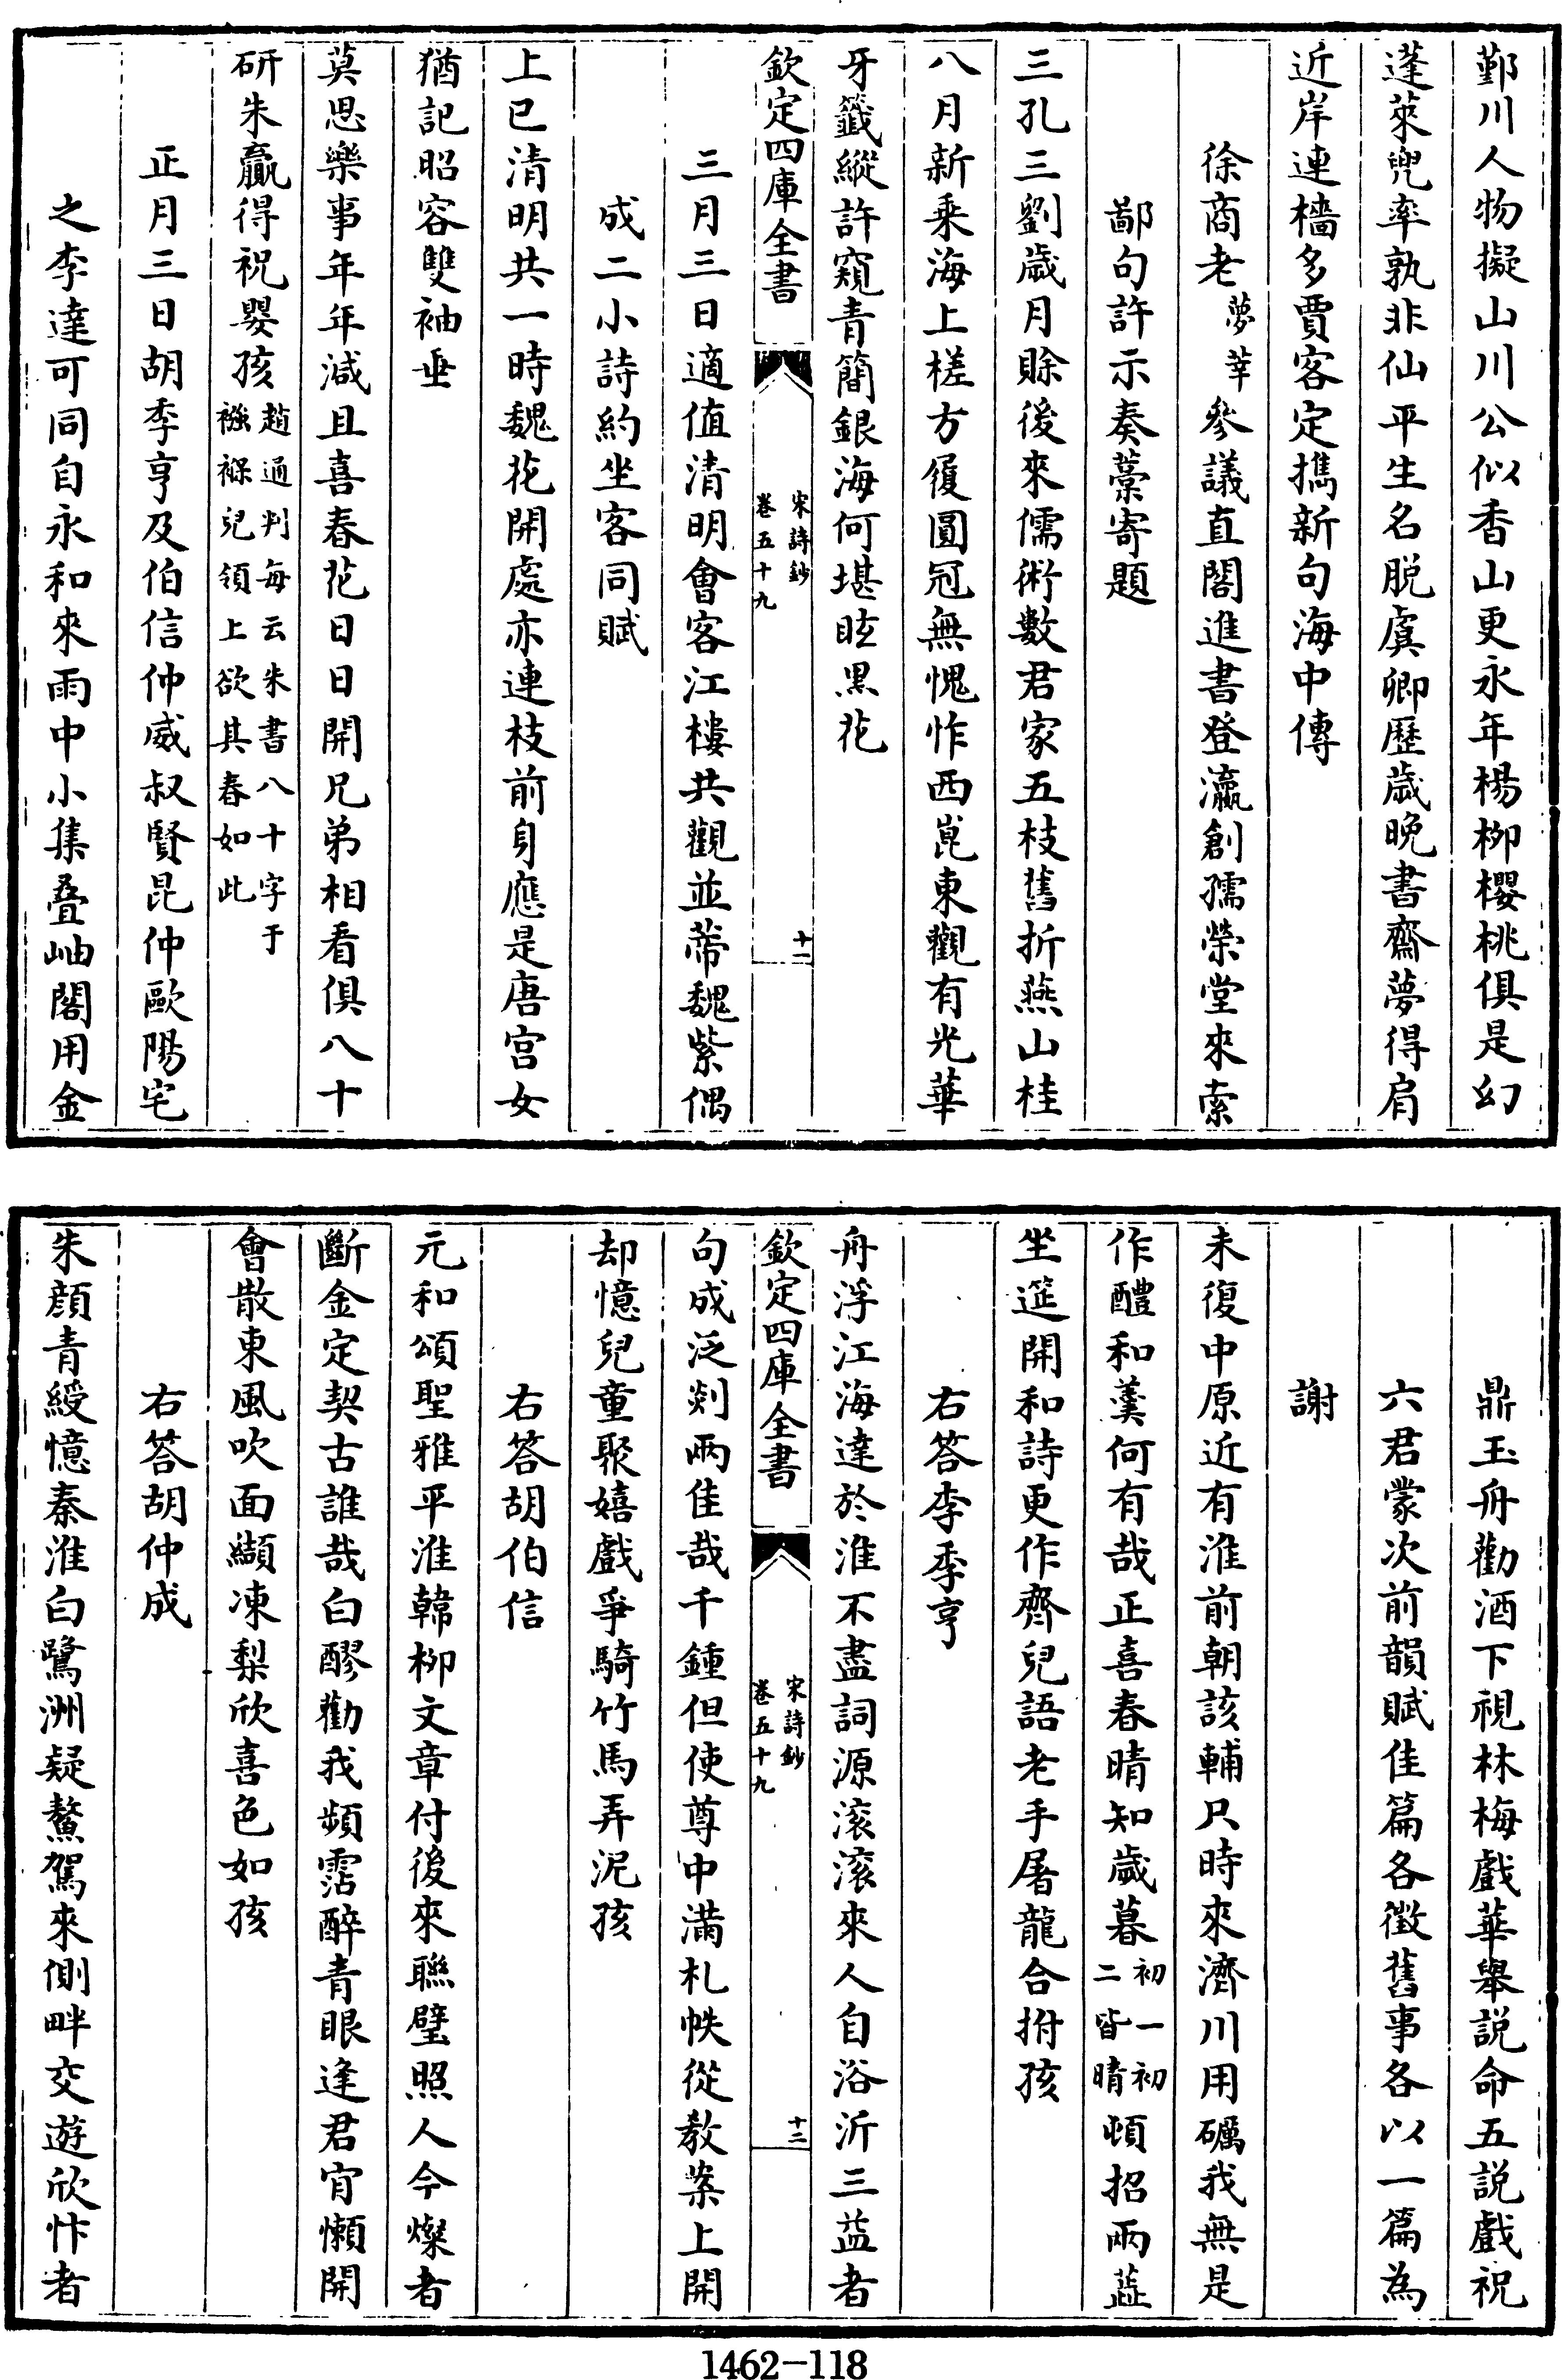 鄞川人物擬山川公似香山更永年楊柳櫻桃俱是幻
蓬萊兜率孰非仙平生名脫虞卿歷歲晚書齋夢得肩
近岸連檣多賈客定攜新句海中傳
徐商老夢莘參議直閣進書登瀛創孺榮堂來索
鄙句許示奏藁寄題
三孔三劉歲月賒後來儒術數君家五枝舊折燕山桂
八月新乘海上槎方履圓冠無愧怍西崑東觀有光華
牙籤縱許窺青簡銀海何堪眩黑花
欽定四庫全書
宋詩鈔
卷五十九
十一
三月三日適值清明會客江樓共觀並蒂魏紫偶
成二小詩約坐客同賦
上巳清明共一時魏花開處亦連枝前身應是唐宮女
猶記昭容雙袖垂
莫思樂事年年減且喜春花日日開兄弟相看俱八十
研朱贏得祝嬰孩趙通判每云朱書八十字于
襁褓兒領上欲其春如此
正月三日胡季亨及伯信仲威叔賢昆仲歐陽宅
之李達可同自永和來雨中小集疊岫閣用金
鼎玉舟勸酒下視林梅戲華舉說命五說戲祝
六君蒙次前韻賦佳篇各徵舊事各以一篇為
謝
未復中原近有淮前朝該輔只時來濟川用礪我無是
作醴和羹何有哉正喜春晴知歲暮初一初
二皆晴頓招兩蓝
坐筵開和詩更作齊兒語老手屠龍合拊孩
右答李季亨
舟浮江海達於淮不盡詞源滚滚來人自浴沂三益者
欽定四庫全書
宋詩鈔
卷五十九
十二
句成泛剡兩佳哉千鍾但使尊中滿札帙從教案上開
却憶兒童聚嬉戲爭騎竹馬弄泥孩
右答胡伯信
元和頌聖雅平淮韓柳文章付後來聯璧照人今燦者
斷金定契古誰哉白醪勸我頻霑醉青眼逢君肯懶開
會散東風吹面纈凍梨欣喜色如孩
右答胡仲成
朱顏青綬憶秦淮白鷺洲疑鰲駕來側畔交遊欣忭者